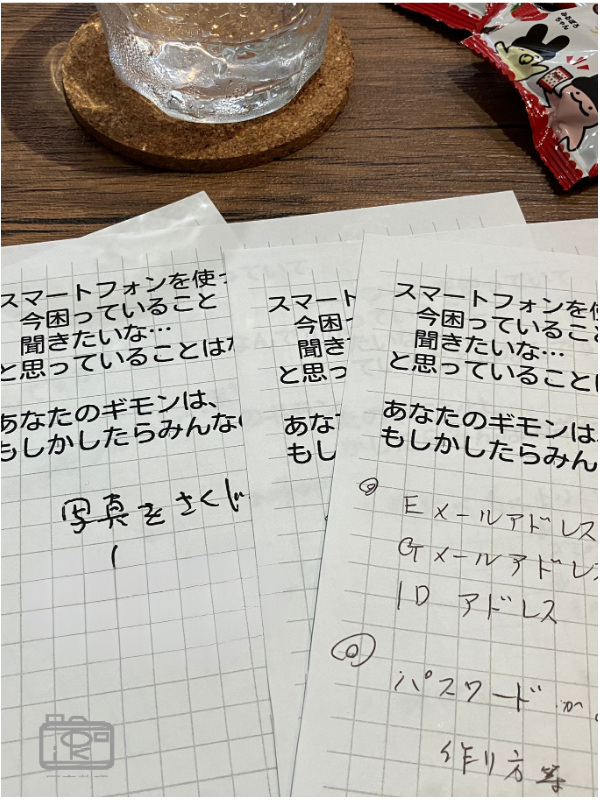 スマートフォンを使っ
今困っていること
聞きたいな…
と思っていることは
あなたのギモンは、
もしかしたらみんな
写真をさくじ
スマート
今困
聞きた
と思っ
あな
もし
スマートフォンを使
今困っていること
聞きたいな…
と思っていることは
あなたのギモンは
もしかしたらみん
Eメールアドレス
Gメールアドレス
ID アドレス
パスワードが
作り方等